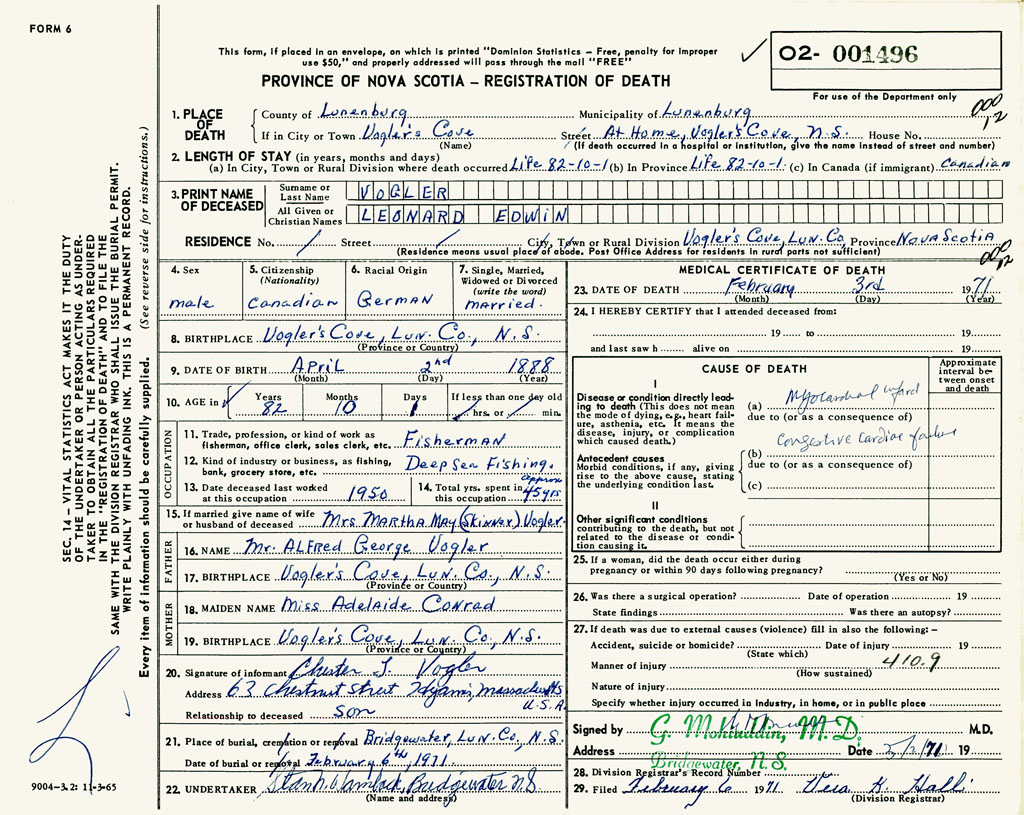 FORM 6
This form, if placed in an envelope, on which is printed "Dominion Statistics – Free, penalty for improper
use $50," and properly addressed will pass through the mail "FREE"
PROVINCE OF NOVA SCOTIA – REGISTRATION OF DEATH
02- 001496
For use of the Department only
000
12
1. PLACE OF DEATH
County of Lunenburg Municipality of Lunenburg
If in City or Town Vogler's Cove Street At Home, Vogler's Cove, N.S. House No.
(Name) (If death occurred in a hospital or institution, give the name instead of street and number)
2. LENGTH OF STAY (in years, months and days)
(a) In City, Town or Rural Division where death occurred Life 82-10-1 (b) In Province Life 82-10-1. (c) In Canada (if immigrant) Canadian
3. PRINT NAME OF DECEASED
Surname or Last Name VOGLER
All Given or Christian Names LEONARD EDWIN
RESIDENCE No. / Street / City, Town or Rural Division Vogler's Cove, Lun. Co. Province Nova Scotia
(Residence means usual place of abode. Post Office Address for residents in rural parts not sufficient)
000
12
4. Sex
male
5. Citizenship
(Nationality)
Canadian
6. Racial Origin
German
7. Single, Married,
Widowed or Divorced
(write the word)
married.
8. BIRTHPLACE Vogler's Cove, Lun. Co., N.S.
(Province or Country)
9. DATE OF BIRTH April 2nd 1888
(Month) (Day) (Year)
10. AGE in
Years Months Days If less than one day old
82 10 1 / hrs. or / min.
OCCUPATION
11. Trade, profession, or kind of work as
fisherman, office clerk, sales clerk, etc. Fisherman
12. Kind of industry or business, as fishing,
bank, grocery store, etc. Deep Sea Fishing.
13. Date deceased last worked
at this occupation 1950
14. Total yrs. spent in
this occupation approx 45 yrs
15. If married give name of wife
or husband of deceased Mrs. Martha May (Skinner) Vogler.
FATHER
16. NAME Mr. Alfred George Vogler
17. BIRTHPLACE Vogler's Cove, Lun. Co., N.S.
(Province or Country)
MOTHER
18. MAIDEN NAME Miss Adelaide Conrad
19. BIRTHPLACE Vogler's Cove, Lun. Co., N.S.
(Province or Country)
20. Signature of informant Chester L. Vogler
Address 63 Chestnut Street Hyannis, Massachusetts
U.S.A.
Relationship to deceased son
21. Place of burial, cremation or removal Bridgewater, Lun. Co., N.S.
Date of burial or removal February 6th, 1971
22. UNDERTAKER Bridgewater N.S.
(Name and address)
MEDICAL CERTIFICATE OF DEATH
23. DATE OF DEATH February 3rd 1971
(Month) (Day) (Year)
24. I HEREBY CERTIFY that I attended deceased from:
19 to 19
and last saw h alive on 19
CAUSE OF DEATH
Approximate interval between onset and death
I
Disease or condition directly leading to death (This does not mean the mode of dying, e.g., heart failure, asthenia, etc. It means the disease, injury, or complication which caused death.)
(a) Myocardial infarct
due to (or as a consequence of)
Congestive cardiac failure
Antecedent causes
Morbid conditions, if any, giving rise to the above cause, stating the underlying condition last.
(b)
due to (or as a consequence of)
(c)
II
Other significant conditions
contributing to the death, but not related to the disease or condition causing it.
25. If a woman, did the death occur either during
pregnancy or within 90 days following pregnancy?
(Yes or No)
26. Was there a surgical operation? Date of operation 19
State findings Was there an autopsy?
27. If death was due to external causes (violence) fill in also the following:–
Accident, suicide or homicide? Date of injury 19
(State which)
Manner of injury 410.9
(How sustained)
Nature of injury
Specify whether injury occurred in industry, in home, or in public place
Signed by G. Mohiuddin, M.D. M.D.
Address Bridgewater, N.S. Date 5/2/71 19
28. Division Registrar's Record Number
29. Filed February 6 1971 Vera K. Hall
(Division Registrar)
SEC. 14 – VITAL STATISTICS ACT MAKES IT THE DUTY
OF THE UNDERTAKER OR PERSON ACTING AS UNDER-
TAKER TO OBTAIN ALL THE PARTICULARS REQUIRED
IN THE "REGISTRATION OF DEATH" AND TO FILE THE
SAME WITH THE DIVISION REGISTRAR WHO SHALL ISSUE THE BURIAL PERMIT.
WRITE PLAINLY WITH UNFADING INK. THIS IS A PERMANENT RECORD.
Every item of information should be carefully supplied. (See reverse side for instructions.)
9004–3.2: 11-3-65